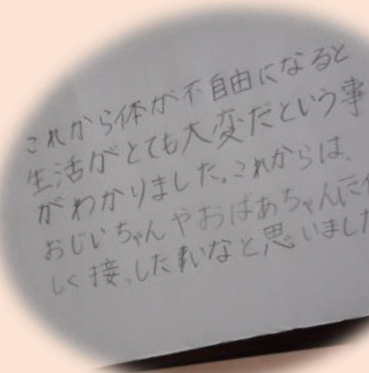 これから体が不自由になると
生活がとても大変だという事
がわかりました。これからは、
おじいちゃんやおばあちゃんに
しく接したいなと思いました